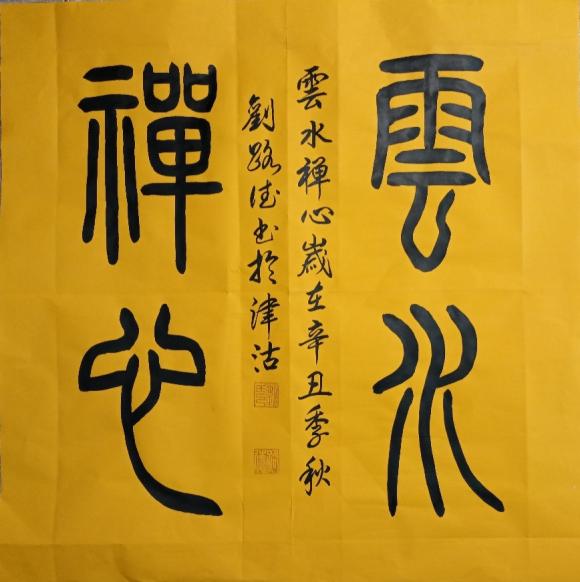 雲水
禪心
雲水禅心歲在辛丑季秋
劉路德书於津沽